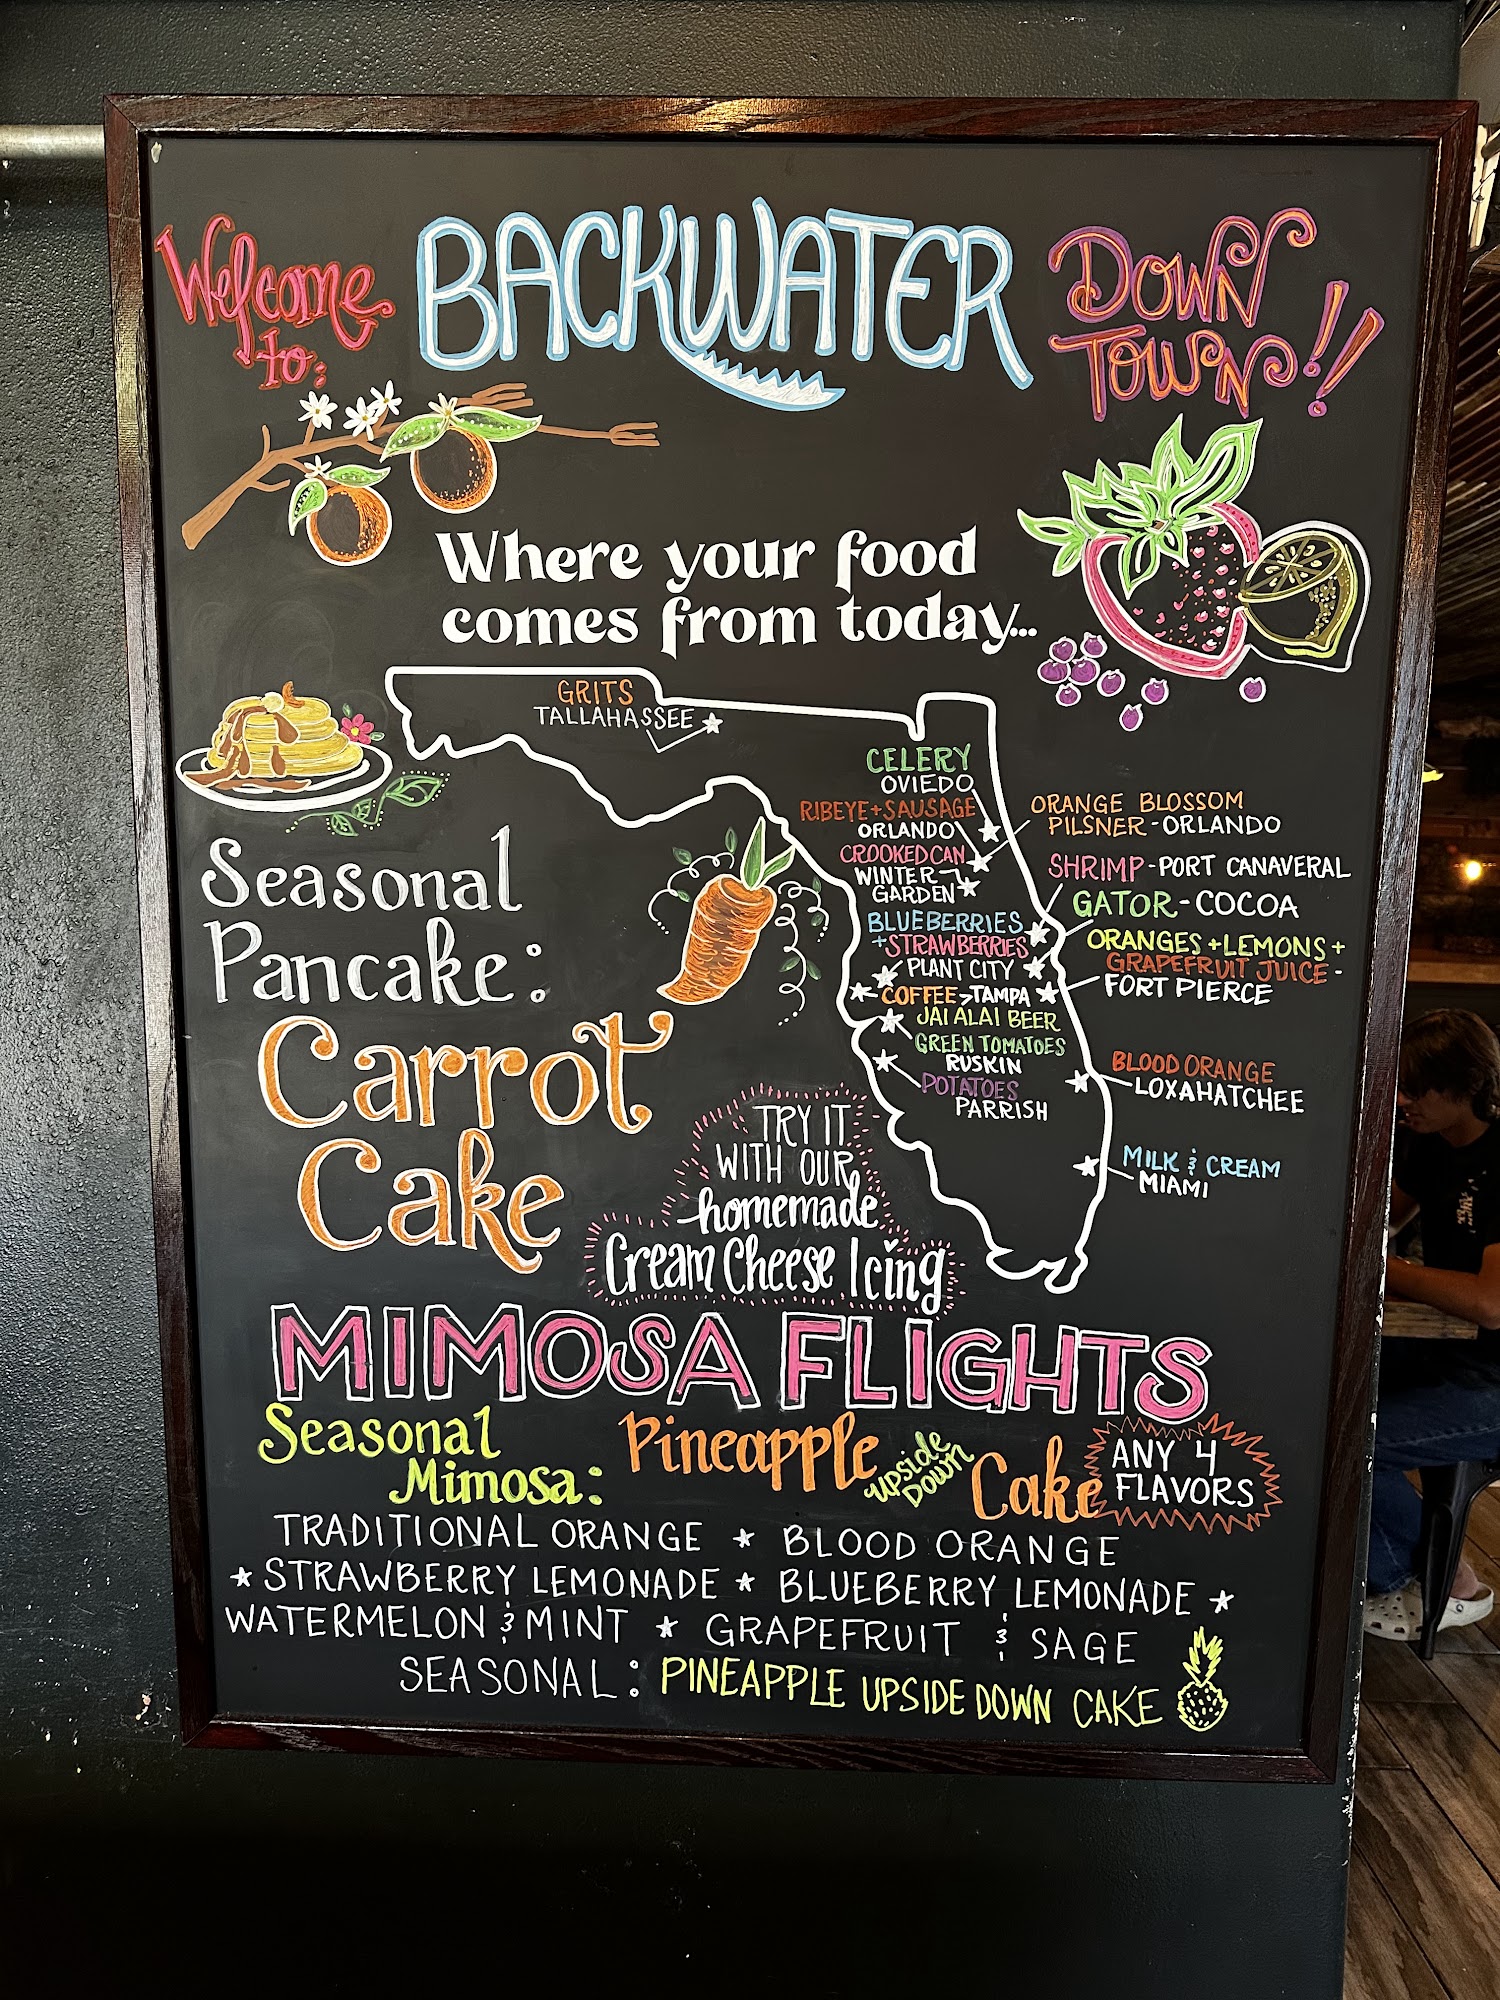 Welcome
to:
BACKWATER
DOWN
TOWN!!
Where your food
comes from today...
GRITS
TALLAHASSEE
CELERY
OVIEDO
RIBEYE+SAUSAGE
ORLANDO
CROOKED CAN
WINTER
GARDEN
BLUEBERRIES
+STRAWBERRIES
PLANT CITY
COFFEE>TAMPA
JAI ALAI BEER
GREEN TOMATOES
RUSKIN
POTATOES
PARRISH
ORANGE BLOSSOM
PILSNER-ORLANDO
SHRIMP-PORT CANAVERAL
GATOR-COCOA
ORANGES+LEMONS+
GRAPEFRUIT JUICE-
FORT PIERCE
BLOOD ORANGE
LOXAHATCHEE
MILK & CREAM
MIAMI
Seasonal
Pancake:
Carrot
Cake
TRY IT
WITH OUR
homemade
Cream Cheese Icing
MIMOSA FLIGHTS
Seasonal
Mimosa:
Pineapple
UPSIDE
DOWN
Cake
ANY 4
FLAVORS
TRADITIONAL ORANGE ★ BLOOD ORANGE
★ STRAWBERRY LEMONADE ★ BLUEBERRY LEMONADE ★
WATERMELON & MINT ★ GRAPEFRUIT & SAGE
SEASONAL: PINEAPPLE UPSIDE DOWN CAKE